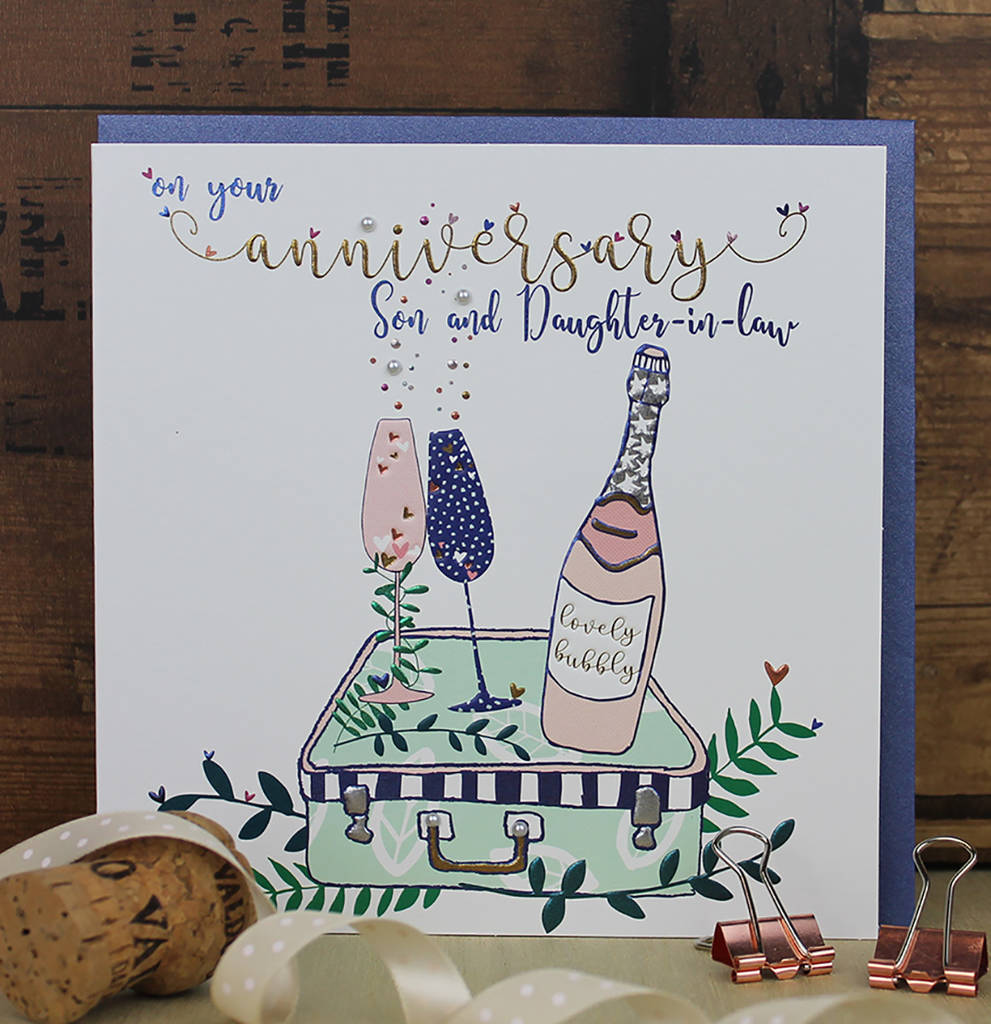 on your
anniversary
Son and Daughter-in-law
lovely
bubbly